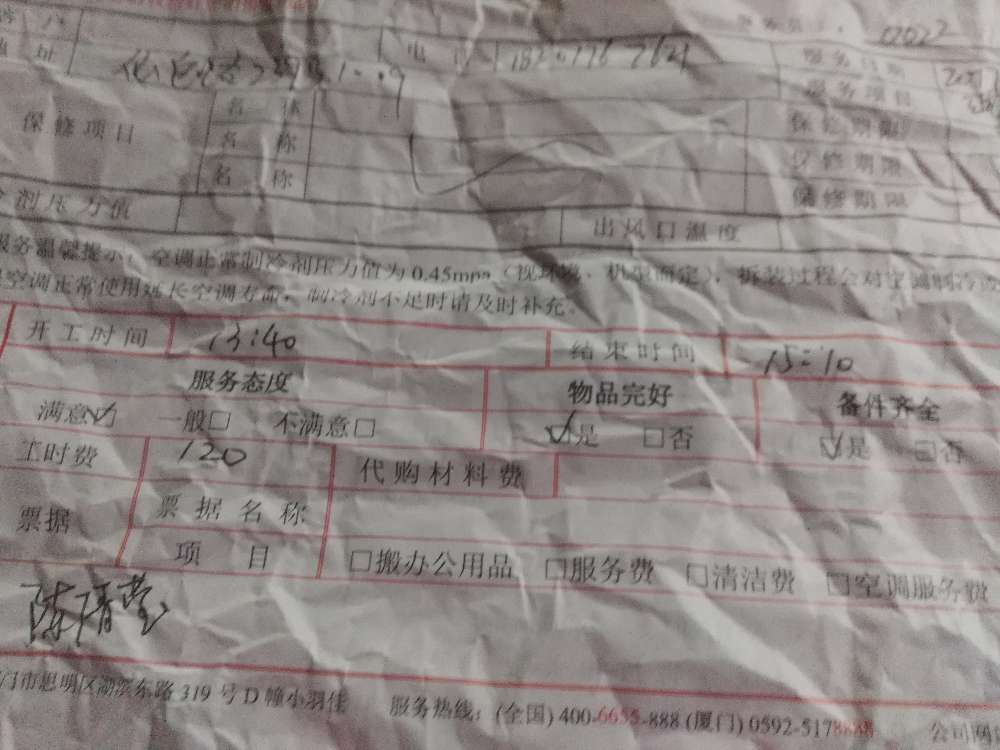 服务日期
服务项目
保修项目 名 称 保修期限
名 称 保修期限
名 称 保修期限
剂压力值 出风口温度
服务温馨提示：空调正常制冷剂压力值为0.45mpa（视环境、机型而定），拆装过程会对空调制冷
空调正常使用延长空调寿命，制冷剂不足时请及时补充。
开工时间 13:40 结束时间 15:10
服务态度 物品完好 备件齐全
满意☑ 一般□ 不满意□ ☑是 □否 ☑是 □否
工时费 120 代购材料费
票据 票据名称
项 目 □搬办公用品 □服务费 □清洁费 □空调服务费
门市思明区湖滨东路319号D幢小羽佳 服务热线：(全国) 400-6655-888 (厦门) 0592-5178888 公司网